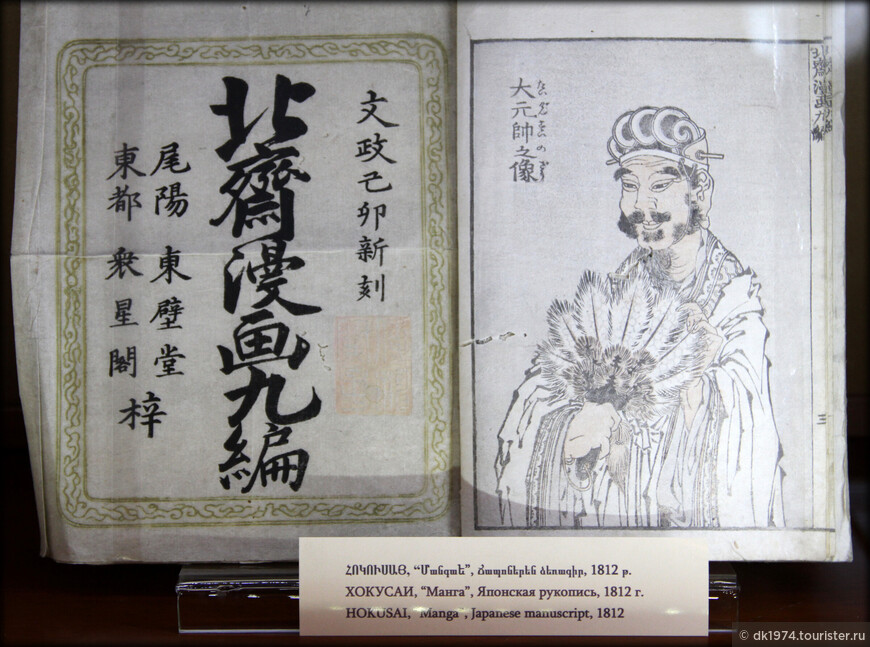 文政己卯新刻
北齋漫画九編
尾陽 東壁堂
東都 衆星閣 梓
大元帥之像
三
ՀՈԿՈՒՍԱՅ, “Մանգաե”, Ճապոներեն ձեռագիր, 1812 թ.
ХОКУСАИ, “Манга”, Японская рукопись, 1812 г.
HOKUSAI, “Manga”, Japanese manuscript, 1812
© dk1974.tourister.ru